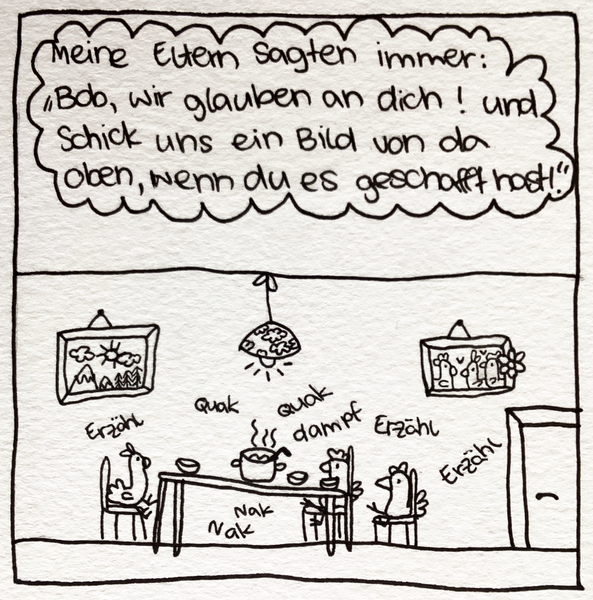 Meine Eltern sagten immer:
„Bob, wir glauben an dich! und
Schick uns ein Bild von da
oben, wenn du es geschafft hast!“
Erzähl
Quak
Quak
dampf
Erzähl
Erzähl
Nak
Nak